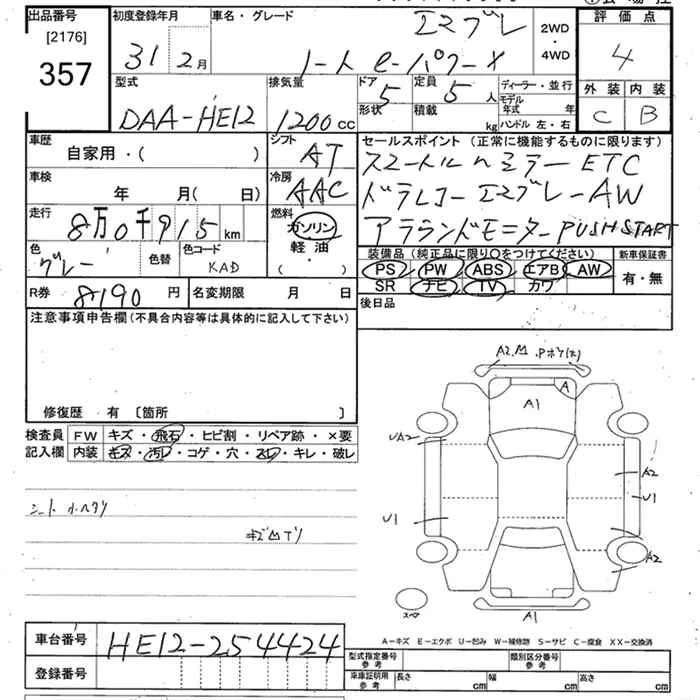 出品番号
[2176]
357
初度登録年月
31 2月
車名・グレード
ノート e-パワーX
2WD
・
4WD
評価点
4
型式
DAA-HE12
排気量
1200cc
ドア
5
定員
5人
形状
積載
kg
ディーラー・並行
モデル年式 年
ハンドル 左・右
外装 内装
C B
車歴
自家用・( )
シフト
AT
セールスポイント(正常に機能するものに限ります)
スマートルームミラー ETC
ドラレコー エマブレーAW
アラウンドモニター PUSH START
車検
年 月( 日)
冷房
AAC
走行
8万0千915km
燃料
ガソリン
軽油
( ・ )
色
グレー
色替
色コード
KAD
装備品(純正品に限り○をつけてください)
PS PW ABS エアB AW
SR ナビ TV カワ
新車保証書
有・無
R券
8190円
名変期限 月 日
後日品
注意事項申告欄(不具合内容等は具体的に記入して下さい)
修復歴 有 〔箇所 〕
検査員
記入欄
FW キズ・飛石・ヒビ割・リペア跡・×要
内装 キズ・汚レ・コゲ・穴・スレ・キレ・破レ
シート
A2
A
A1
UA2
A2
U1
U1
A2
A1
スペア
A-キズ E-エクボ U-凹み W-補修跡 S-サビ C-腐食 XX-交換済
車台番号
HE12-254424
登録番号
型式指定番号
参考
類別区分番号
参考
車庫証明用
参考
長さ cm
幅 cm
高さ cm